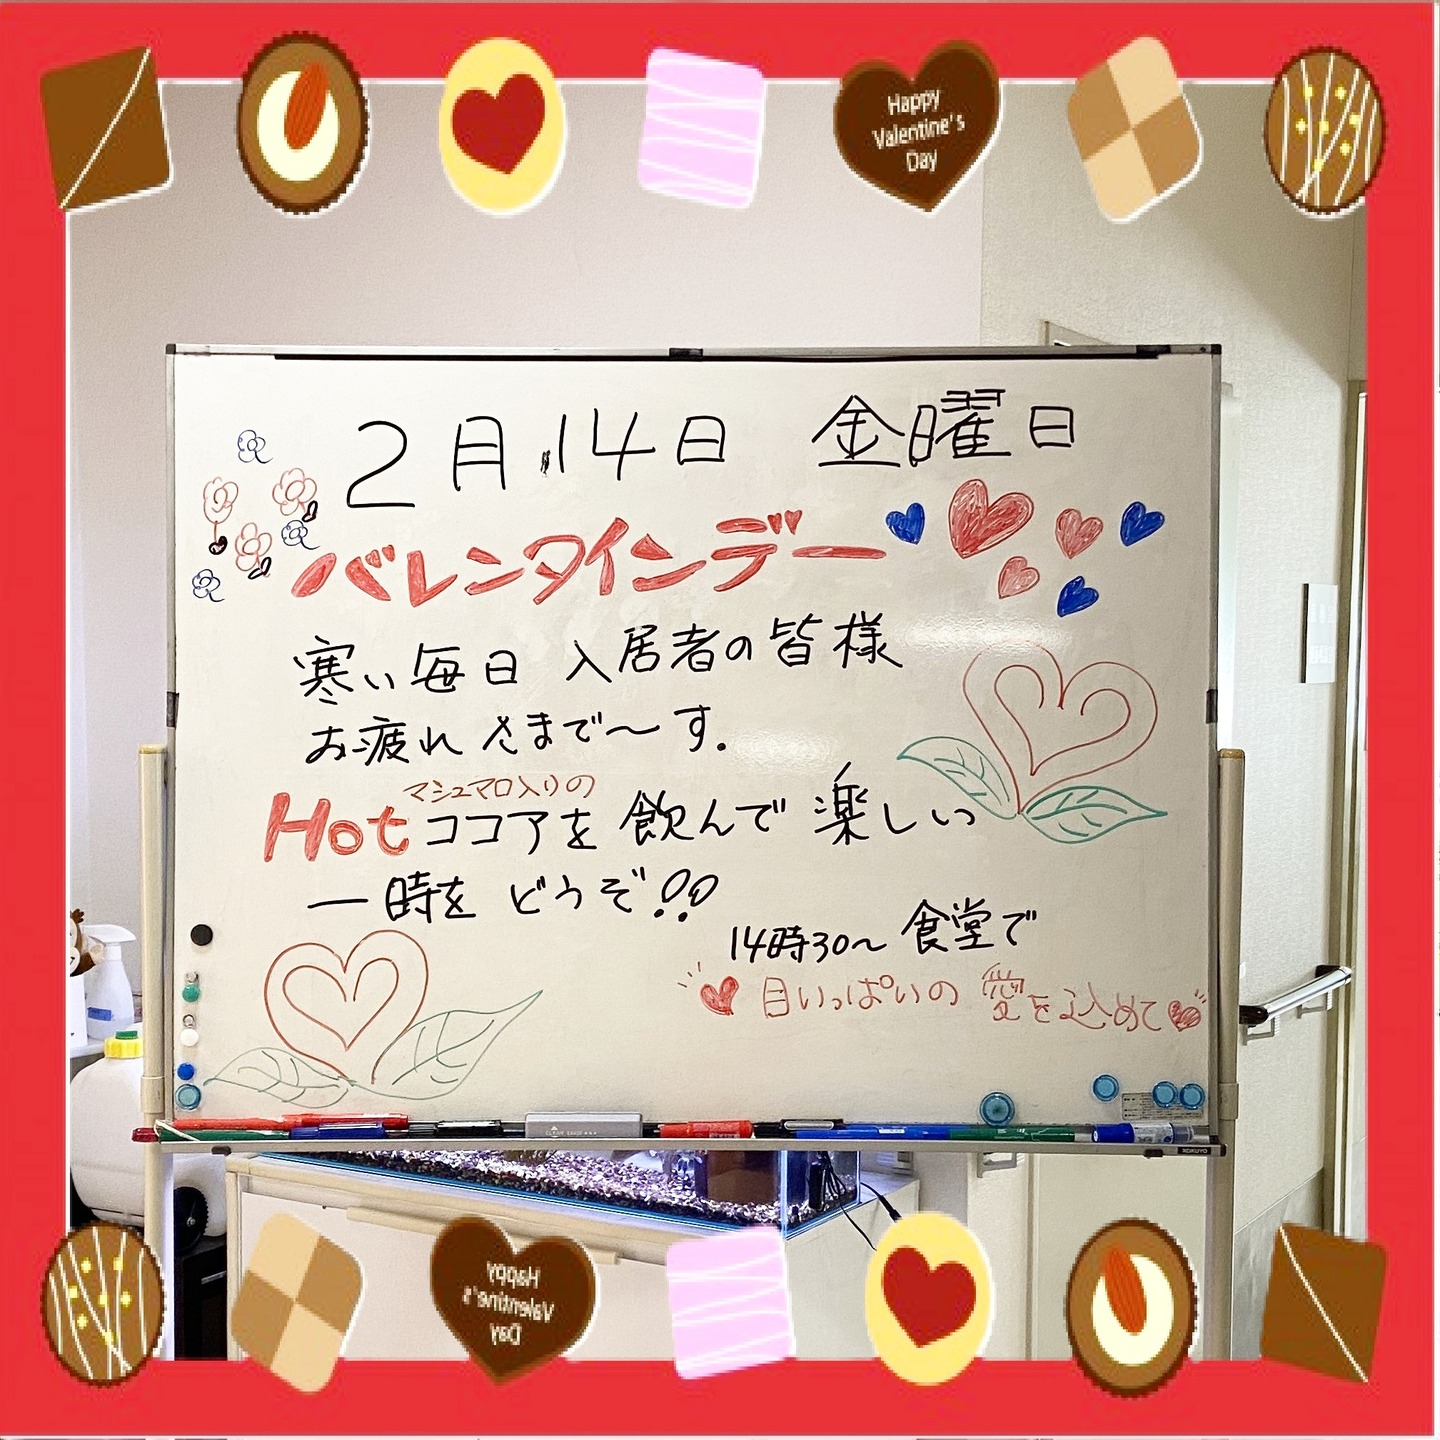 Happy
Valentine's
Day
2月14日 金曜日
バレンタインデー
寒い毎日 入居者の皆様
お疲れさまで〜す.
マシュマロ入りの
Hotココアを飲んで楽しい
一時をどうぞ!!
14時30〜食堂で
目いっぱいの愛を込めて
KOKUYO
Happy
Valentine's
Day